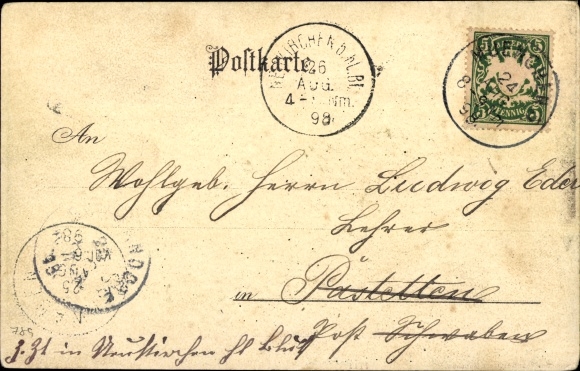 Postkarte
NEUKIRCHEN b. HL. BL.
26
AUG.
4-5 Nm.
98
5 5
PFENNIG
5 5
24
An
Wohlgeb. Herrn Ludwig Eder
Lehrer
in Pastetten
Post Schwaben
z. Zt in Neukirchen hl Blut
785